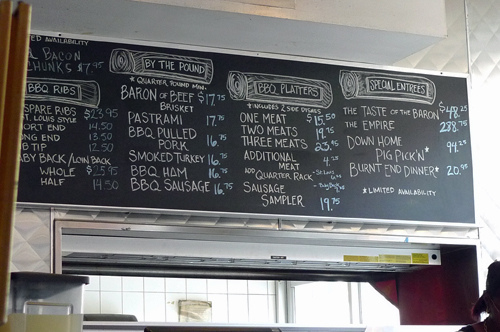 ED AVAILABILITY
BACON
CHUNKS $7.95
BBQ RIBS
SPARE RIBS $23.95
T. LOUIS STYLE
ORT END 14.50
NG END 13.50
B TIP 12.50
ABY BACK / LOIN BACK
WHOLE $25.95
HALF 14.50
BY THE POUND
*QUARTER POUND MIN.
BARON OF BEEF $17.75
BRISKET
PASTRAMI 17.75
BBQ PULLED
PORK 16.75
SMOKED TURKEY 16.75
BBQ HAM 16.75
BBQ SAUSAGE 16.75
BBQ PLATTERS
*INCLUDES 2 SIDE DISHES
ONE MEAT $15.50
TWO MEATS 19.75
THREE MEATS 23.95
ADDITIONAL
MEAT
ADD QUARTER RACK
SAUSAGE
SAMPLER 19.75
SPECIAL ENTREES
THE TASTE OF THE BARON $48.25
THE EMPIRE 288.75
DOWN HOME
PIG PICK'N* 94.25
BURNT END DINNER* 20.95
*LIMITED AVAILABILITY